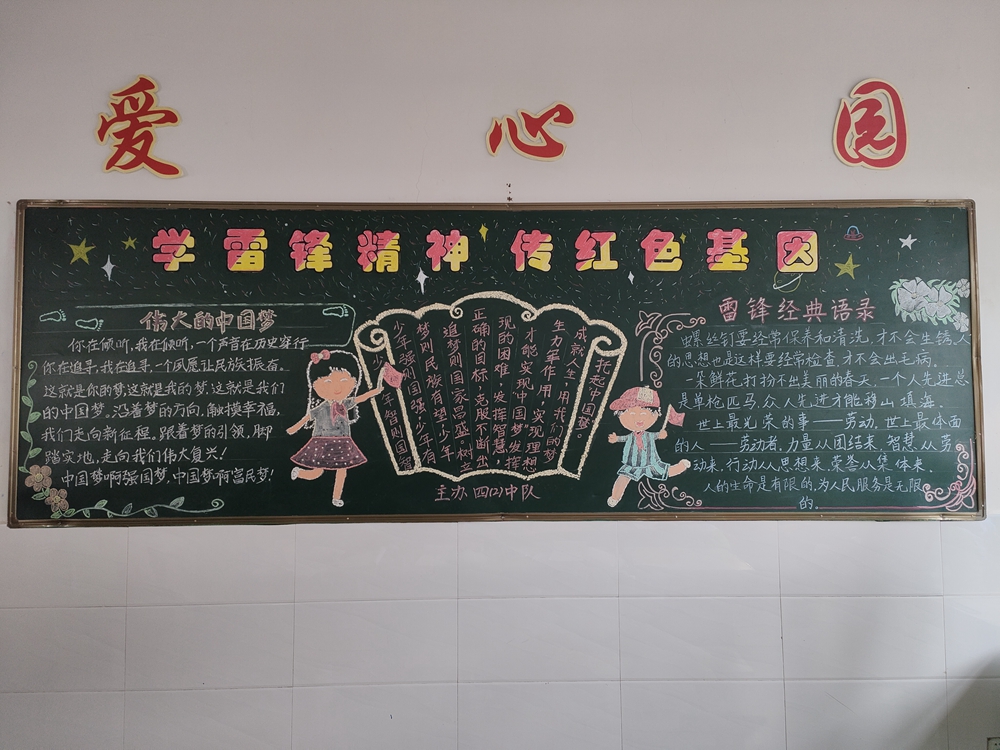 爱心园
学雷锋精神 传红色基因
伟大的中国梦
你在倾听,我在倾听,一个声音在历史穿行
你在追寻,我在追寻,一个夙愿让民族振奋。
这就是你的梦,这就是我的梦,这就是我们
的中国梦。沿着梦的方向,触摸幸福,
我们走向新征程。跟着梦的引领,脚
踏实地,走向我们伟大复兴!
中国梦啊强国梦,中国梦啊富民梦!
少年强则国强,少年智则国智
梦则民族有望,少年有
追梦则国家昌盛。树立
正确的目标,克服不断出
现的困难,发挥智慧,
才能实现“中国梦”发挥
生力军作用,实现理想
成就人生,用我们的梦
托起中国梦。
主办 四(2)中队
雷锋经典语录
螺丝钉要经常保养和清洗,才不会生锈,人
的思想也是这样要经常检查,才不会出毛病。
一朵鲜花打扮不出美丽的春天,一个人先进总
是单枪匹马,众人先进才能移山填海。
世上最光荣的事——劳动,世上最体面
的人——劳动者,力量从团结来,智慧从劳
动来,行动从思想来,荣誉从集体来。
人的生命是有限的,为人民服务是无限
的。